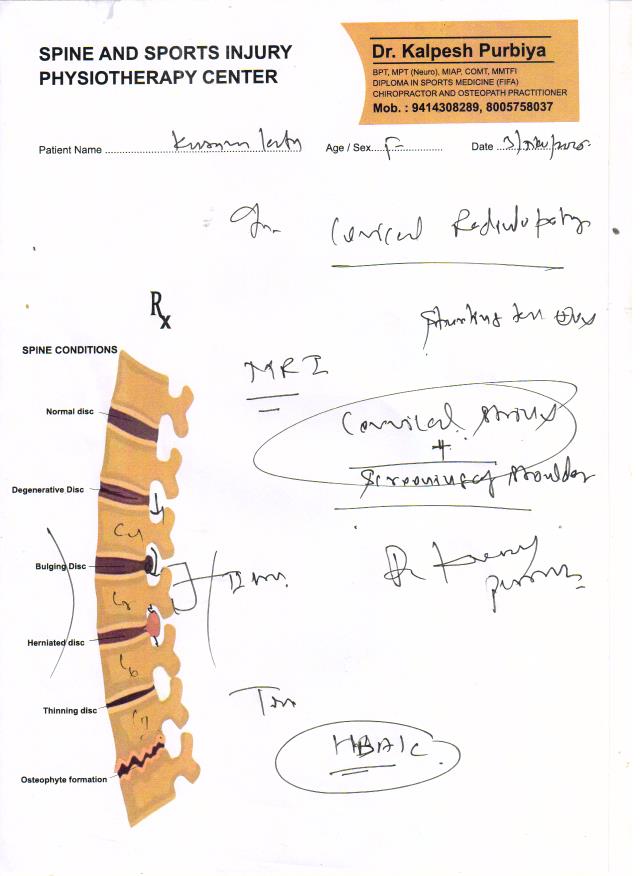 SPINE AND SPORTS INJURY
PHYSIOTHERAPY CENTER
Dr. Kalpesh Purbiya
BPT, MPT (Neuro), MIAP, COMT, MMTFI
DIPLOMA IN SPORTS MEDICINE (FIFA)
CHIROPRACTOR AND OSTEOPATH PRACTITIONER
Mob. : 9414308289, 8005758037
Patient Name
Age / Sex F Date
Cervical
Rx
SPINE CONDITIONS
MRI
Normal disc
Cervical
+
Screening of shoulder
Degenerative Disc
C4
Bulging Disc
Dr
C5
Herniated disc
C6
Thinning disc
C7
HBA1C
Osteophyte formation